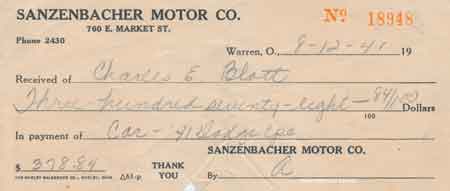 SANZENBACHER MOTOR CO. No 18948
760 E. MARKET ST.
Phone 2430
Warren, O., 8-12-41 19
Received of Charles E Blott
Three-hundred seventy-eight — 84/100 Dollars
100
In payment of Car - 41 Dodge cpe
SANZENBACHER MOTOR CO.
$ 378.84 THANK YOU By